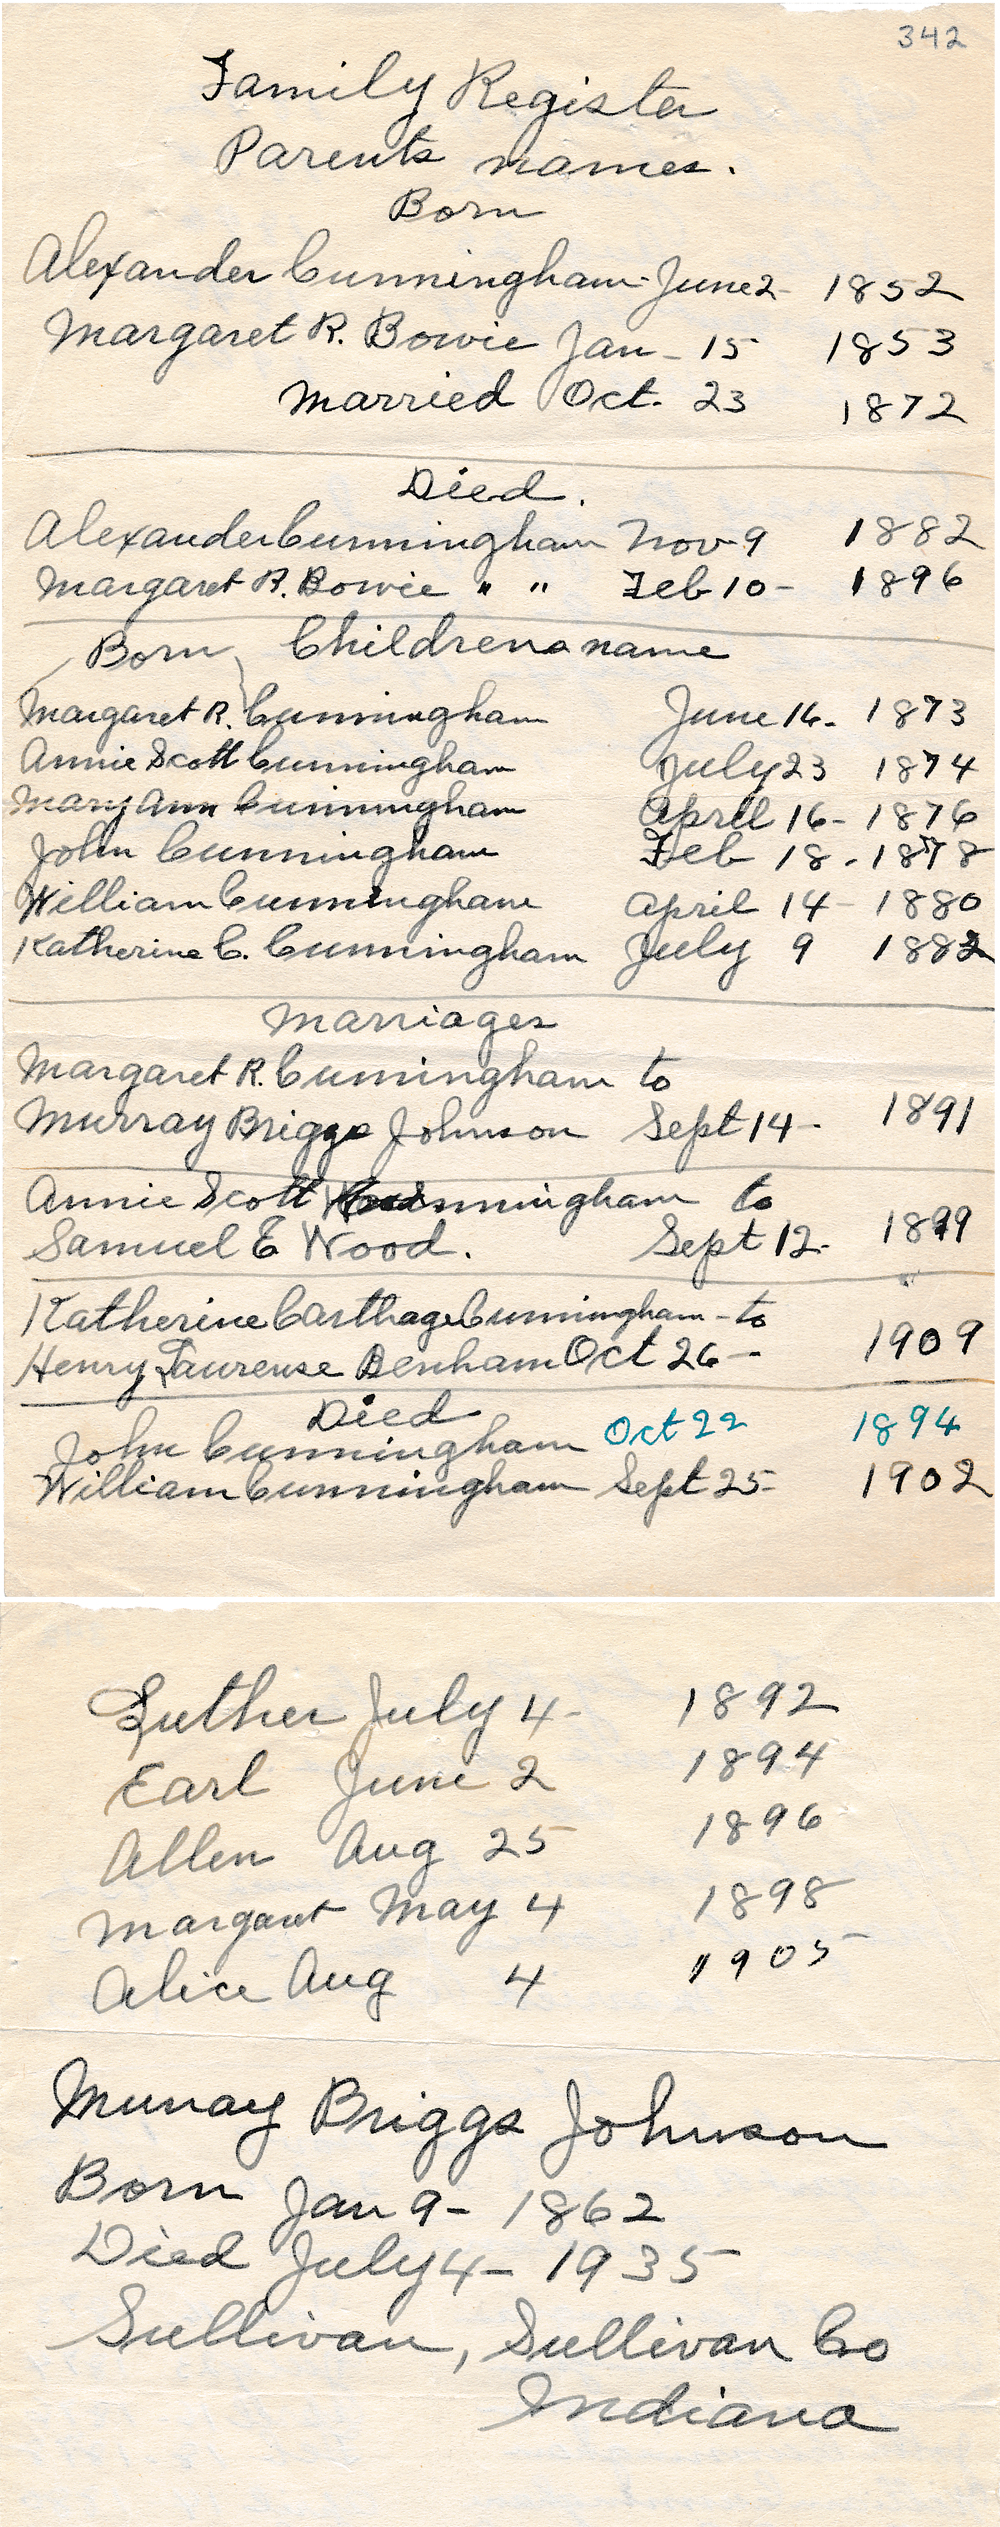 342
Family Register
Parents names.
Born
Alexander Cunningham - June 2 - 1852
Margaret R. Bowie Jan - 15 1853
Married Oct. 23 1872
Died.
Alexander Cunningham Nov 9 1882
Margaret R. Bowie " " Feb 10 - 1896
Born Childrens name
Margaret R. Cunningham June 16 - 1873
Annie Scott Cunningham July 23 1874
Mary Ann Cunningham April 16 - 1876
John Cunningham Feb 18 - 1878
William Cunningham April 14 - 1880
Katherine C. Cunningham July 9 1882
Marriages
Margaret R. Cunningham to
Murray Briggs Johnson Sept 14 - 1891
Annie Scott Cunningham to
Samuel E Wood. Sept 12 - 1899
Katherine Carthage Cunningham - to
Henry Laurense Denham Oct 26 - 1909
Died
John Cunningham Oct 22 1894
William Cunningham Sept 25 - 1902
Luther July 4 - 1892
Earl June 2 1894
Allen Aug 25 1896
Margaret May 4 1898
Alice Aug 4 1905
Murray Briggs Johnson
Born Jan 9 - 1862
Died July 4 - 1935
Sullivan, Sullivan Co
Indiana